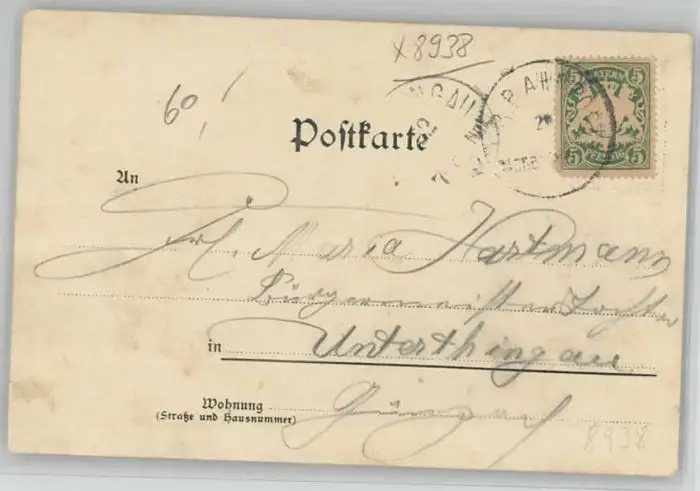 x 8938
60,
Postkarte
An
Frl. Maria Hartmann
Bürgermeisterstochter
in Unterthingau
Wohnung
(Straße und Hausnummer)
8938
BAYERN
5 5
5 5
PFENNIG